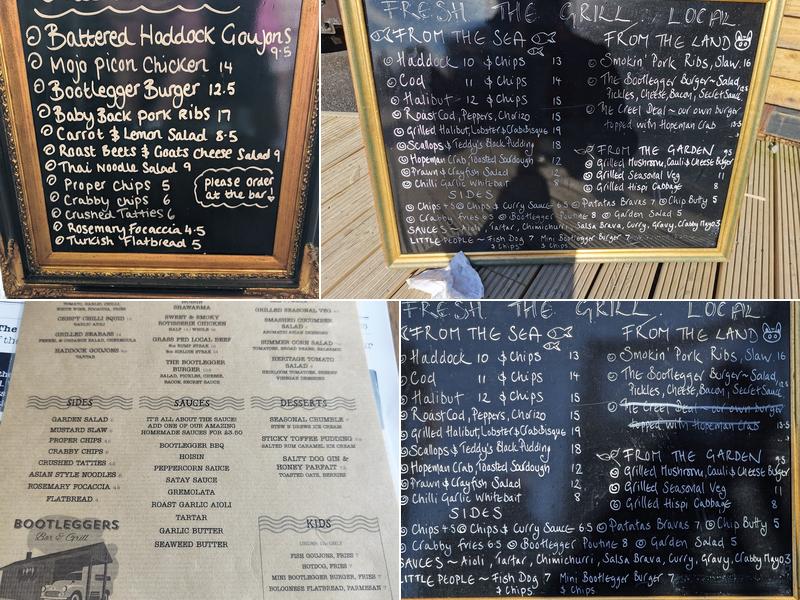 Battered Haddock Goujons
9.5
Mojo Picon Chicken 14
Bootlegger Burger 12.5
Baby Back pork Ribs 17
Carrot & Lemon Salad 8.5
Roast Beets & Goats Cheese Salad 9
Thai Noodle Salad 9
Proper Chips 5
Crabby chips 6
Crushed Tatties 6
Rosemary Focaccia 4.5
Turkish Flatbread 5
please order
at the bar
FRESH THE GRILL LOCAL
FROM THE SEA
Haddock 10 & Chips 13
Cod 11 & Chips 14
Halibut 12 & Chips 15
Roast Cod, Peppers, Chorizo 15
Grilled Halibut, Lobster & Crab Bisque 19
Scallops & Teddy's Black Pudding 18
Hopeman Crab, Toasted Sourdough 12
Prawn & Crayfish Salad 12
Chilli Garlic Whitebait 8
FROM THE LAND
Smokin' Pork Ribs, Slaw 16
The Bootlegger Burger ~ Salad,
Pickles, Cheese, Bacon, Secret Sauce 12.5
The Creel Deal ~ our own burger
topped with Hopeman Crab 13.5
FROM THE GARDEN
Grilled Mushroom, Cauli & Cheese Burger 9.5
Grilled Seasonal Veg 11
Grilled Hispi Cabbage 8
SIDES
Chips + 5 Chips & Curry Sauce 6.5 Patatas Bravas 7 Chip Buty 5
Crabby Fries 6.5 Bootlegger Poutine 8 Garden Salad 5
SAUCES ~ Aioli, Tartar, Chimichurri, Salsa Brava, Curry, Gravy, Crabby Mayo 3
LITTLE PEOPLE ~ Fish Dog 7 Mini Bootlegger Burger 7
& Chips & Chips
WHITE WINE, FOCACCIA, FRIES
CRISPY CHILLI SQUID
GARLIC AIOLI
GRILLED SEABASS
FENNEL & ORANGE SALAD, CHERMOULA
HADDOCK GOUJONS
TARTAR
SHAWARMA
SWEET & SMOKY
ROTISSERIE CHICKEN
GRASS FED LOCAL BEEF
8oz RUMP STEAK
8oz SIRLOIN STEAK
THE BOOTLEGGER
BURGER
SALAD, PICKLES, CHEESE,
BACON, SECRET SAUCE
GRILLED SEASONAL VEG
SMASHED CUCUMBER
SALAD
AROMATIC ASIAN DRESSING
SUMMER CORN SALAD
TOMATOES, BROAD BEANS, BALSAMIC
HERITAGE TOMATO
SALAD
HEIRLOOM TOMATOES, SHERRY
VINEGAR DRESSING
SIDES
GARDEN SALAD
MUSTARD SLAW
PROPER CHIPS
CRABBY CHIPS
CRUSHED TATTIES
ASIAN STYLE NOODLES
ROSEMARY FOCACCIA
FLATBREAD
SAUCES
IT'S ALL ABOUT THE SAUCE!
ADD ONE OF OUR AMAZING
HOMEMADE SAUCES FOR £3.50
BOOTLEGGER BBQ
HOISIN
PEPPERCORN SAUCE
SATAY SAUCE
GREMOLATA
ROAST GARLIC AIOLI
TARTAR
GARLIC BUTTER
SEAWEED BUTTER
DESSERTS
SEASONAL CRUMBLE
STEW N DREW'S ICE CREAM
STICKY TOFFEE PUDDING
SALTED RUM CARAMEL, ICE CREAM
SALTY DOG GIN &
HONEY PARFAIT
TOASTED OATS, BERRIES
KIDS
FISH GOUJONS, FRIES 7
HOTDOG, FRIES 7
MINI BOOTLEGGER BURGER, FRIES 7
BOLOGNESE FLATBREAD, PARMESAN 7
BOOTLEGGERS
Bar & Grill
FRESH THE GRILL LOCAL
FROM THE SEA
Haddock 10 & Chips 13
Cod 11 & Chips 14
Halibut 12 & Chips 15
Roast Cod, Peppers, Chorizo 15
Grilled Halibut, Lobster & Crab Bisque 19
Scallops & Teddy's Black Pudding 18
Hopeman Crab, Toasted Sourdough 12
Prawn & Crayfish Salad 12
Chilli Garlic Whitebait 8
FROM THE LAND
Smokin' Pork Ribs, Slaw 16
The Bootlegger Burger ~ Salad,
Pickles, Cheese, Bacon, Secret Sauce 12.5
The Creel Deal ~ our own burger
topped with Hopeman Crab 13.5
FROM THE GARDEN
Grilled Mushroom, Cauli & Cheese Burger 9.5
Grilled Seasonal Veg 11
Grilled Hispi Cabbage 8
SIDES
Chips + 5 Chips & Curry Sauce 6.5 Patatas Bravas 7 Chip Buty 5
Crabby Fries 6.5 Bootlegger Poutine 8 Garden Salad 5
SAUCES ~ Aioli, Tartar, Chimichurri, Salsa Brava, Curry, Gravy, Crabby Mayo 3
LITTLE PEOPLE ~ Fish Dog 7 Mini Bootlegger Burger 7
& Chips & Chips